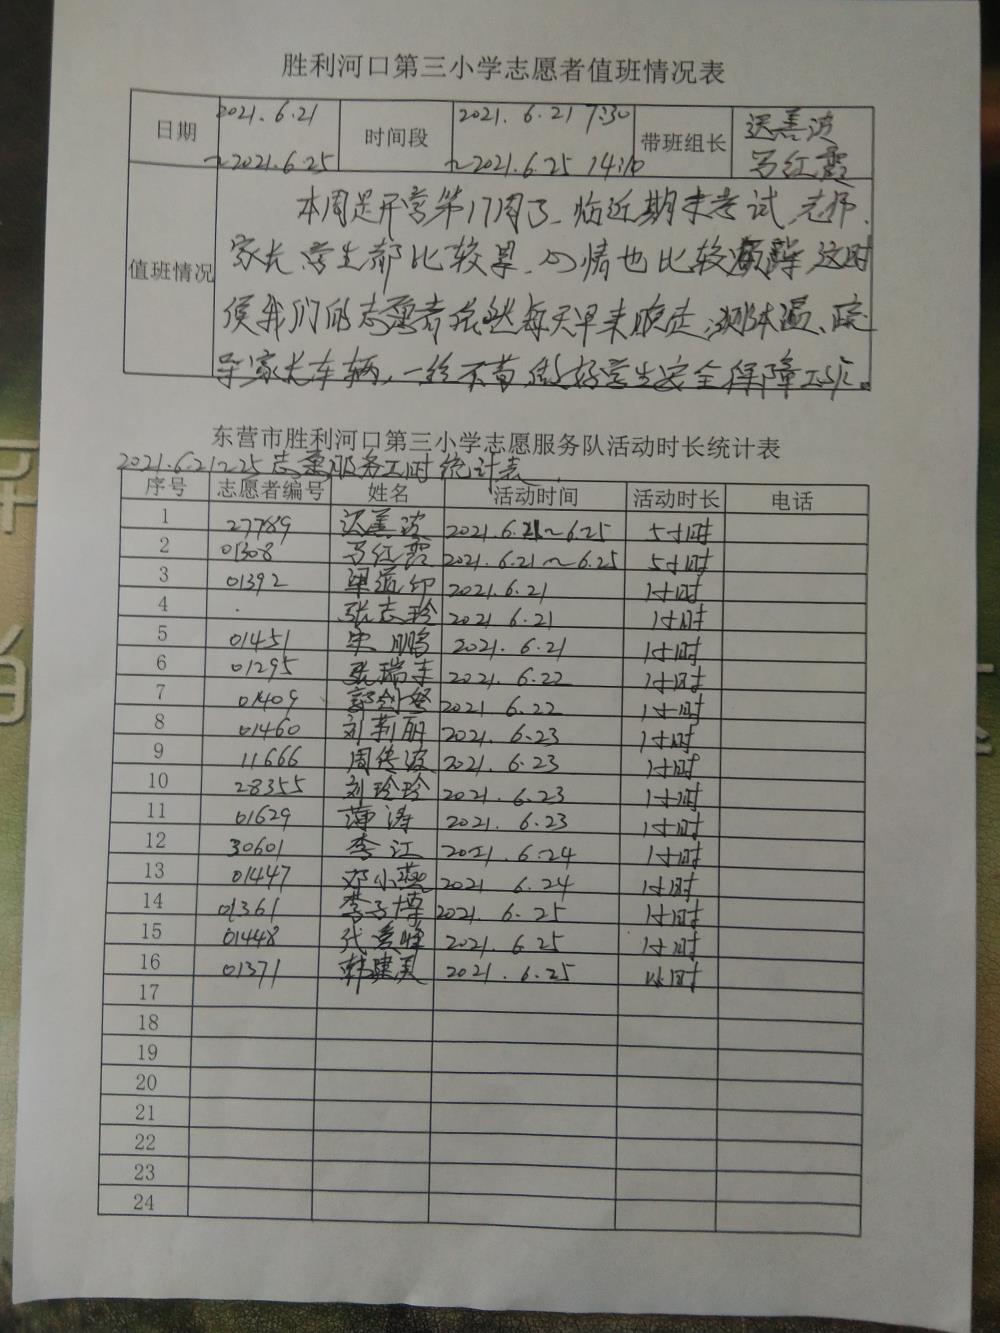 胜利河口第三小学志愿者值班情况表
日期 2021.6.21 ~2021.6.25 时间段 2021.6.21 7:30 ~2021.6.25 14:10 带班组长 迟善波 马红霞
值班情况
本周是开学第17周了、临近期末考试 老师、
家长、学生都比较累、心情也比较 这时
侯我们的志愿者依然每天早来晚走、测体温、疏
导家长车辆,一丝不苟做好学生安全保障工作。
东营市胜利河口第三小学志愿服务队活动时长统计表
2021.6.21~25志愿服务工时统计表
序号 志愿者编号 姓名 活动时间 活动时长 电话
1 27789 迟善波 2021.6.21~6.25 5小时
2 01308 马红霞 2021.6.21~6.25 5小时
3 01392 梁道印 2021.6.21 1小时
4 张志玲 2021.6.21 1小时
5 01451 宋鹏 2021.6.21 1小时
6 01295 张瑞丰 2021.6.22 1小时
7 01409 郭剑 2021.6.22 1小时
8 01460 刘莉丽 2021.6.23 1小时
9 11666 周传波 2021.6.23 1小时
10 28355 刘玲玲 2021.6.23 1小时
11 01629 薄涛 2021.6.23 1小时
12 30601 李江 2021.6.24 1小时
13 01447 邓小燕 2021 6.24 1小时
14 01361 李子博 2021.6.25 1小时
15 01448 代 峰 2021.6.25 1小时
16 01371 韩建美 2021.6.25 1小时
17
18
19
20
21
22
23
24